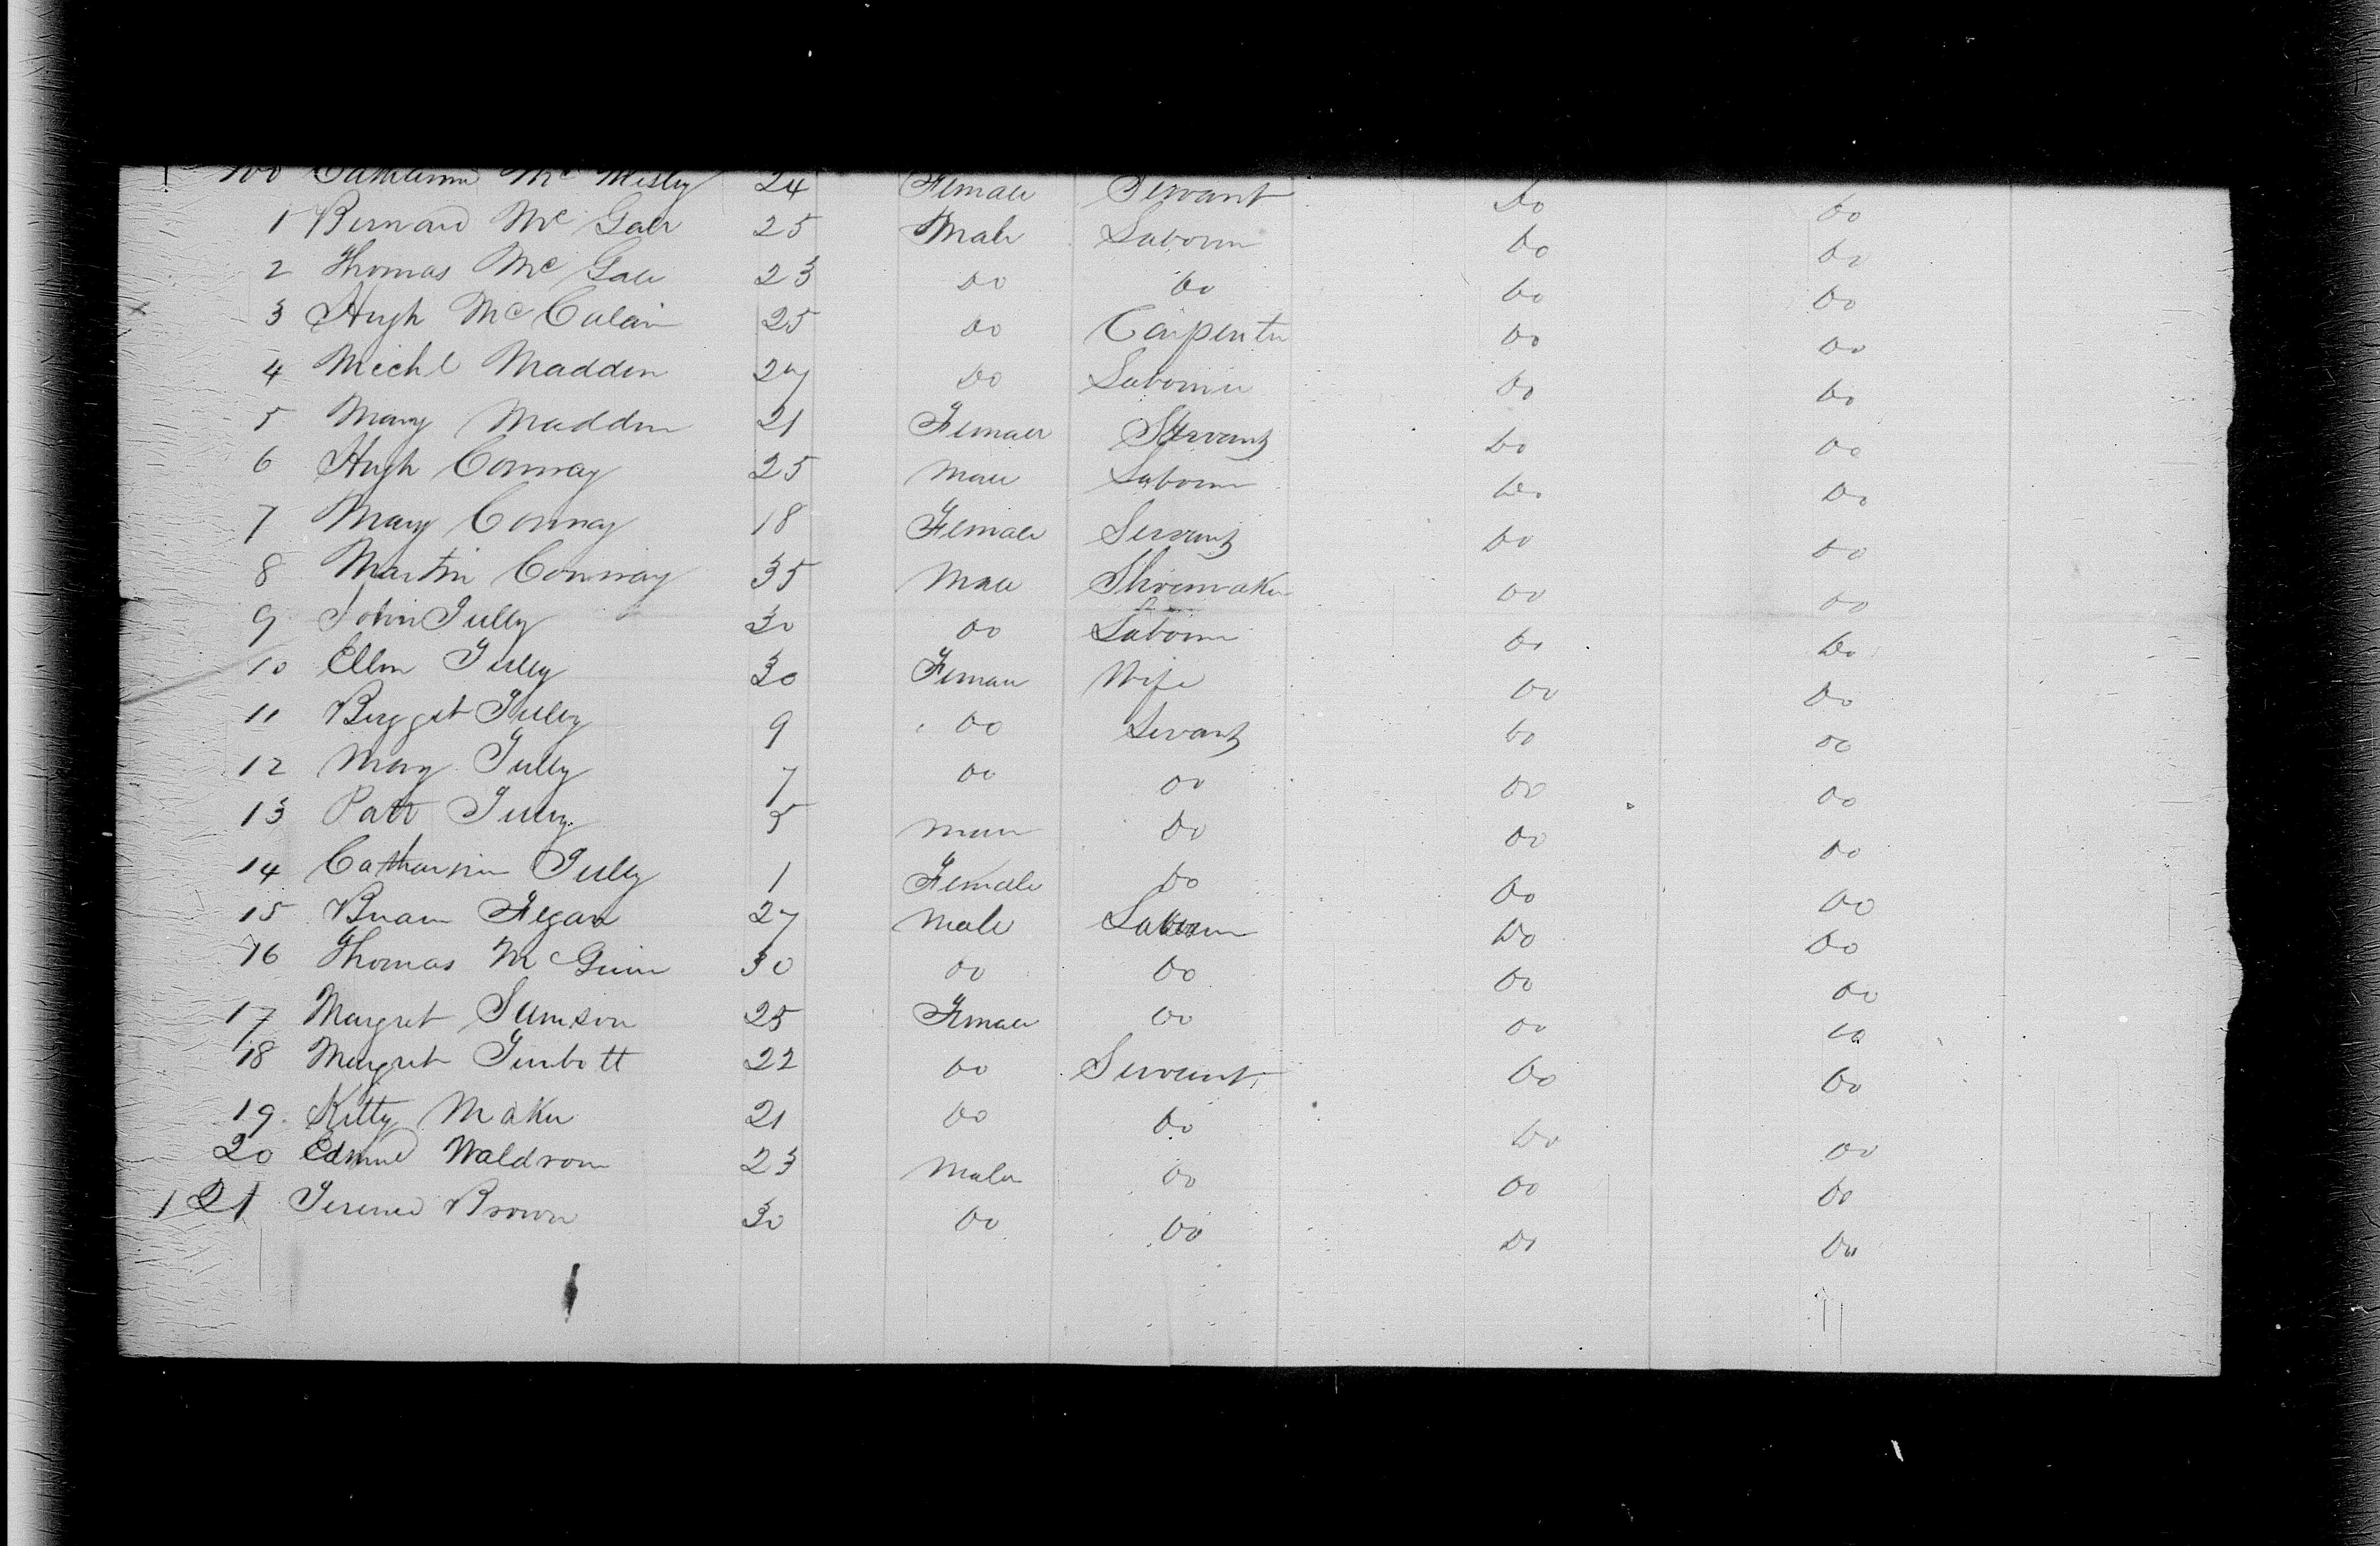 100 Catherine Mc 24 Female Servant Do Do
1 Bernard Mc Gale 25 Male Laborer Do Do
2 Thomas Mc Gale 23 Do Do Do Do
3 Hugh McCulain 25 Do Carpenter Do Do
4 Michl Madden 27 Do Laborer Do Do
5 Mary Madden 21 Female Servant Do Do
6 Hugh Conway 25 Male Laborer Do Do
7 Mary Conway 18 Female Servant Do Do
8 Martin Conway 35 Male Shoemaker Do Do
9 John Tully 30 Do Laborer Do Do
10 Ellen Tully 30 Female Wife Do Do
11 Birgget Tully 9 Do Servant Do Do
12 Mary Tully 7 Do Do Do Do
13 Patt Tully 5 Male Do Do Do
14 Catharine Tully 1 Female Do Do Do
15 Fegan 27 Male Laborer Do Do
16 Thomas McGuin 30 Do Do Do Do
17 Margret Samson 25 Female Do Do Do
18 Margret 22 Do Servant Do Do
19 Kitty Maker 21 Do Do Do Do
20 Edmund Waldron 23 Male Do Do Do
121 Terence Brown 30 Do Do Do Do